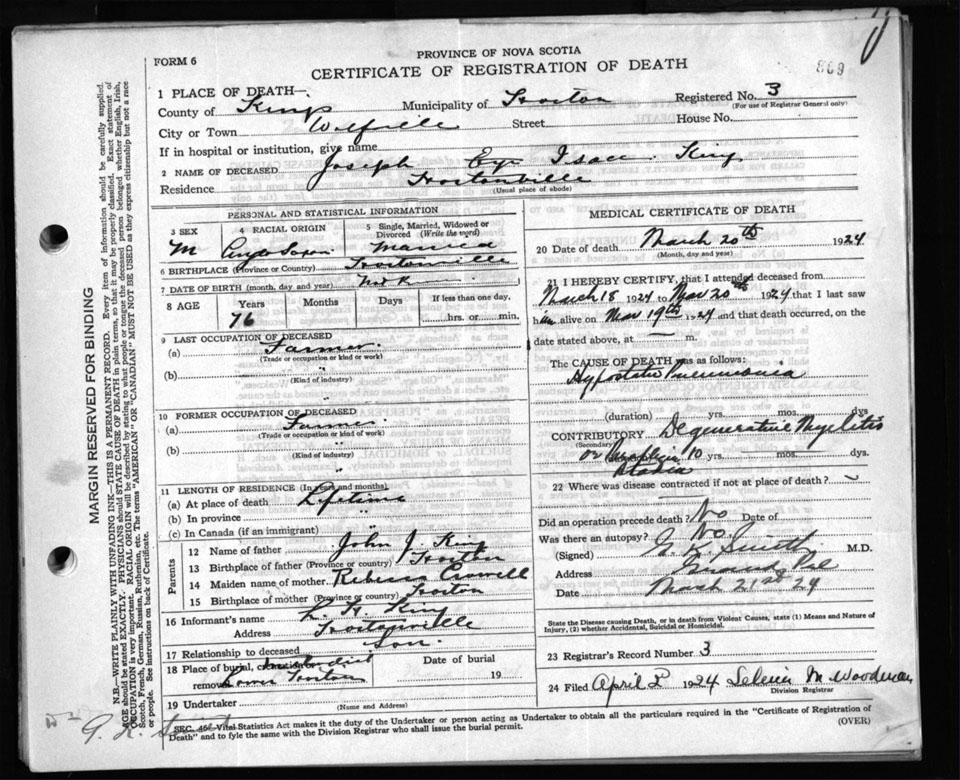 FORM 6
PROVINCE OF NOVA SCOTIA
CERTIFICATE OF REGISTRATION OF DEATH
869
1 PLACE OF DEATH—
County of Kings Municipality of Horton Registered No. 3
(For use of Registrar General only)
City or Town Wolfville Street House No.
If in hospital or institution, give name
2 NAME OF DECEASED Joseph Isaac King
Residence Hortonville
(Usual place of abode)
PERSONAL AND STATISTICAL INFORMATION
3 SEX 4 RACIAL ORIGIN 5 Single, Married, Widowed or Divorced (Write the word)
M Anglo Saxon Married
6 BIRTHPLACE (Province or Country) Hortonville
7 DATE OF BIRTH (month, day and year)
8 AGE Years Months Days If less than one day,
76 hrs. or min.
9 LAST OCCUPATION OF DECEASED
(a) Farmer
(Trade or occupation or kind of work)
(b)
(Kind of industry)
10 FORMER OCCUPATION OF DECEASED
(a) Farmer
(Trade or occupation or kind of work)
(b)
(Kind of industry)
11 LENGTH OF RESIDENCE (In years and months)
(a) At place of death Lifetime
(b) In province "
(c) In Canada (if an immigrant) "
Parents
12 Name of father John J. King
13 Birthplace of father (Province or country) Horton
14 Maiden name of mother Rebecca Crowell
15 Birthplace of mother (Province or country) Horton
16 Informant's name H. King
Address Hortonville
17 Relationship to deceased Son
18 Place of burial, cremation or
removal Lower Horton
Date of burial 19
19 Undertaker
(Name and Address)
MEDICAL CERTIFICATE OF DEATH
20 Date of death March 20th 1924
(Month, day and year)
21 I HEREBY CERTIFY, that I attended deceased from
March 18 1924 to Mar 20th 1924 that I last saw
him alive on Mar 19th 1924 and that death occurred, on the
date stated above, at m.
The CAUSE OF DEATH was as follows:
Hypostatic Pneumonia
(duration) yrs. mos. dys
CONTRIBUTORY Degenerative Myelitis
(Secondary)
or 10 yrs. mos. dys.
Ataxia
22 Where was disease contracted if not at place of death?
Did an operation precede death? No Date of
Was there an autopsy? No
(Signed) Smith M.D.
Address Grand Pre
Date March 21st 24
State the Disease causing Death, or in death from Violent Causes, state (1) Means and Nature of
Injury, (2) whether Accidental, Suicidal or Homicidal.
23 Registrar's Record Number 3
24 Filed April 2 1924 M Woodman
Division Registrar
SEC. Vital Statistics Act makes it the duty of the Undertaker or person acting as Undertaker to obtain all the particulars required in the "Certificate of Registration of
Death" and to fyle the same with the Division Registrar who shall issue the burial permit.
(OVER)
MARGIN RESERVED FOR BINDING
N.B.—WRITE PLAINLY WITH UNFADING INK—THIS IS A PERMANENT RECORD. Every item of information should be carefully supplied.
AGE should be stated EXACTLY. PHYSICIANS should STATE CAUSE OF DEATH in plain terms, so that it may be properly classified. Exact statement of
OCCUPATION is very important. RACIAL ORIGIN will be described by stating to what people or tongue the deceased person belonged whether English, Irish,
Scotch, French, German, Russian, Ruthenian, etc. The terms "AMERICAN" OR "CANADIAN" MUST NOT BE USED as they express citizenship but not a race
or people. See instructions on back of Certificate.